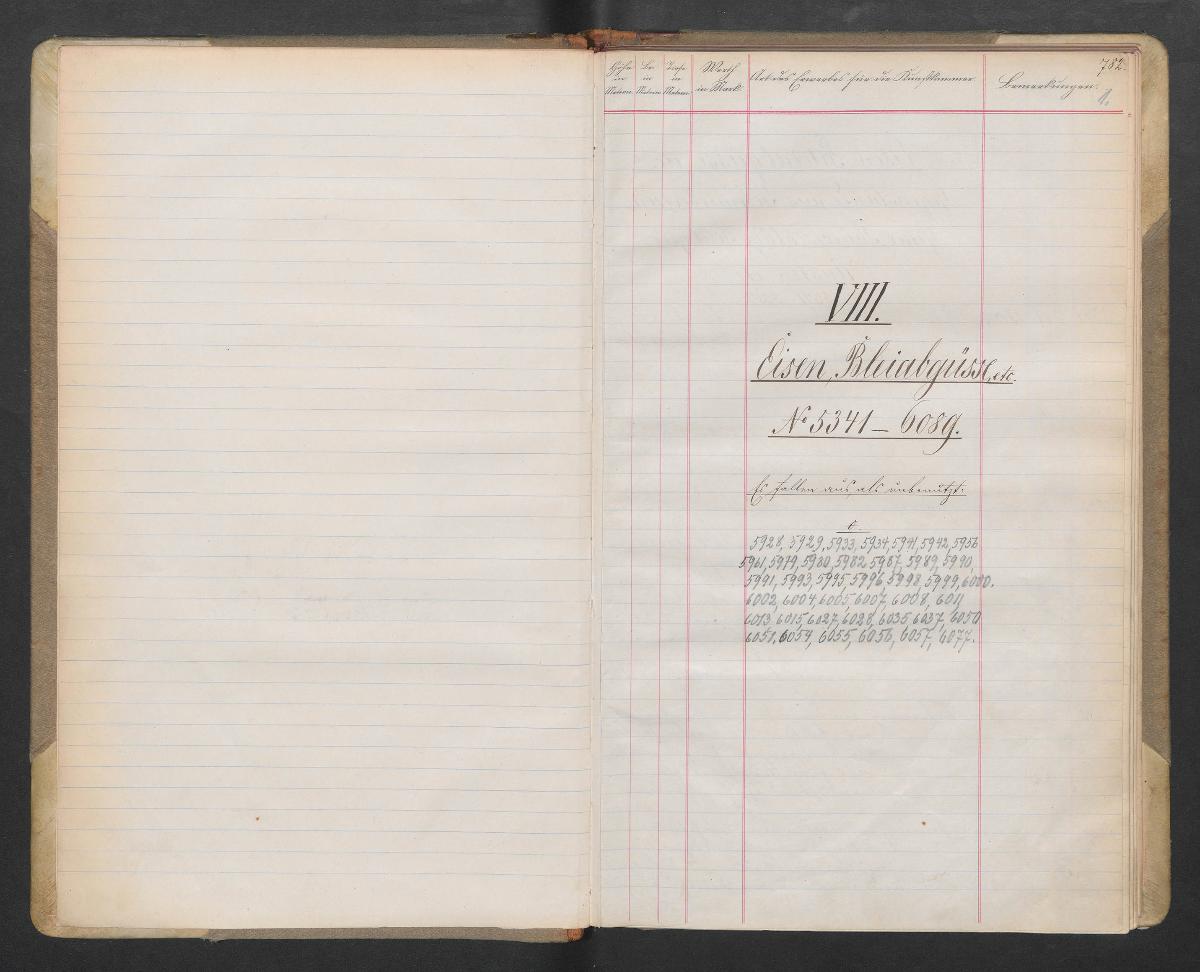 782.
1.
Höhe in Metern
Br. in Metern
Tiefe in Metern
Werth in Mark
Art des Erwerbes für die Kunstkammer
Bemerkungen.
VIII.
Eisen, Bleiabgüsse, etc.
No 5341 – 6089.
Es fallen aus, als unbenutzt:
5928, 5929, 5933, 5934, 5941, 5942, 5956
5961, 5979, 5980, 5982, 5987, 5989, 5990,
5991, 5993, 5995, 5996, 5998, 5999, 6000.
6002, 6004, 6005, 6007, 6008, 6011
6013, 6015, 6027, 6028, 6035, 6037, 6050
6051, 6054, 6055, 6056, 6057, 6077.